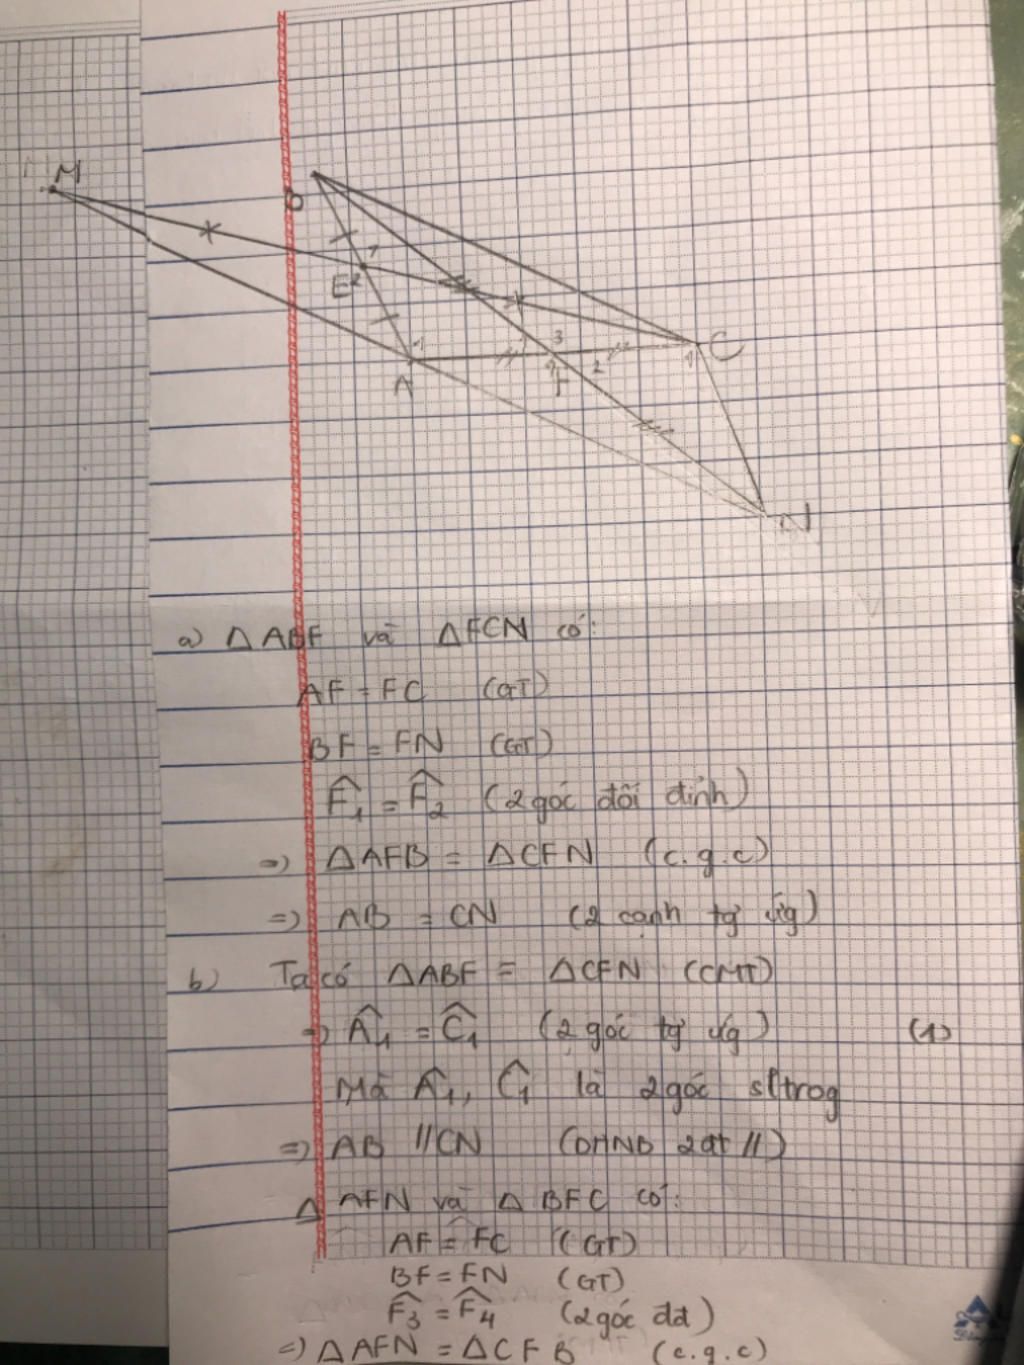 M
B
E 2 1
1 3 C
A 1 F 2 1
N
a) Δ ABF và Δ FCN có:
AF = FC (GT)
BF = FN (GT)
F̂₁ = F̂₂ (2 góc đối đỉnh)
=> Δ AFB = Δ CFN (c.g.c)
=> AB = CN (2 cạnh tg ứg)
b) Ta có Δ ABF = Δ CFN (CMT)
=> Â₁ = Ĉ₁ (2 góc tg ứg) (1)
Mà Â₁, Ĉ₁ là 2 góc sltrog
=> AB // CN (DHNB 2 đt //)
Δ AFN và Δ BFC có:
AF = FC (GT)
BF = FN (GT)
F̂₃ = F̂₄ (2 góc đđ)
=> Δ AFN = Δ CFB (c.g.c)